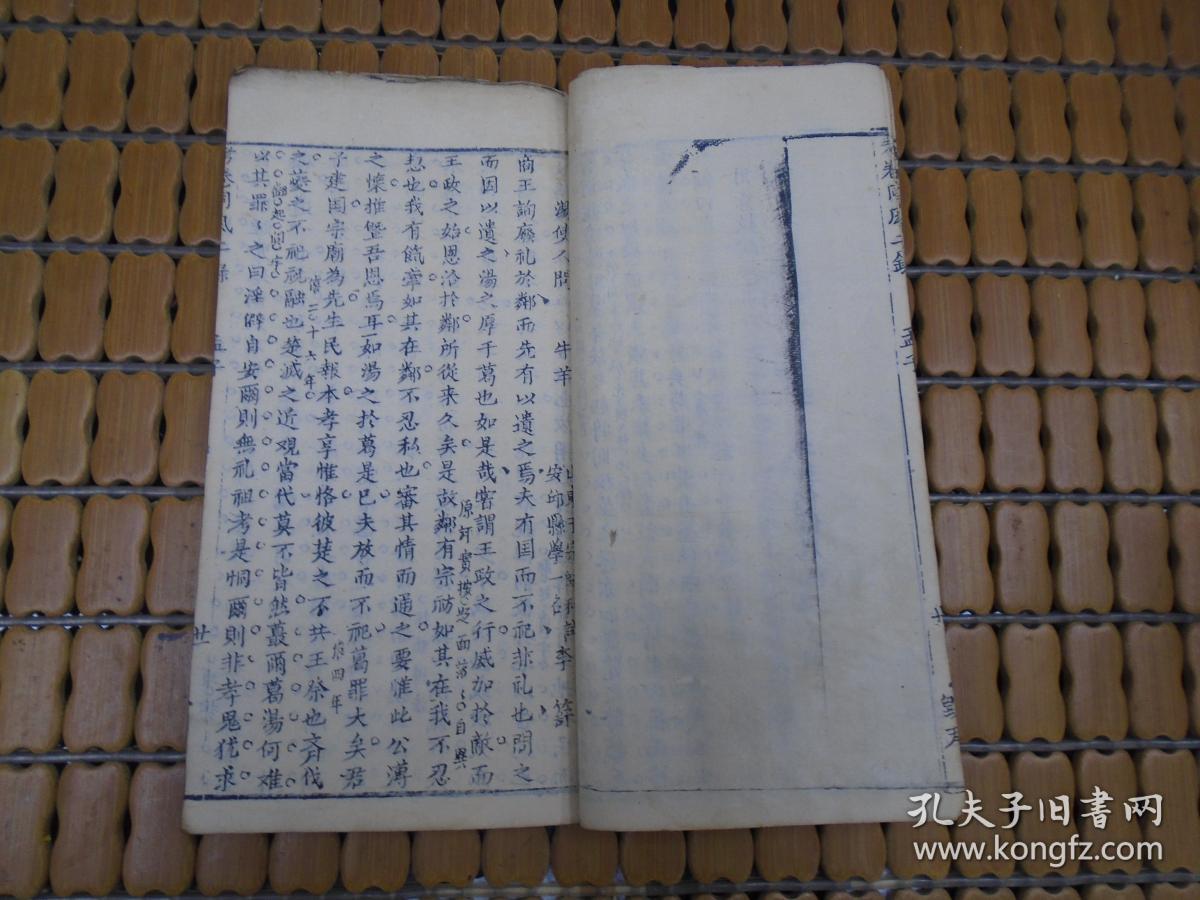 湯使人問 牛羊
安邱縣學一名 李
商王詢廢礼於鄰而先有以遺之焉夫有国而不祀非礼也問之
而因以遺之湯之厚于葛也如是哉嘗謂王政之行威加於敵而
原評實按處面落自異
王政之始恩洽於鄰所從来久矣是故鄰有宗祊如其在我不忍
恝也我有餼牽如其在鄰不忍私也審其情而通之要惟此公溥
之懷推曁吾恩焉耳一如湯之於葛是已夫放而不祀葛罪大矣君
子建国宗廟為先生民報本孝享惟恪彼楚之不共王祭也齊伐
僖四年
僖二十六年
之夔之不祀祝融也楚滅之近觀當代莫不皆然蕞爾葛湯何难
以其罪々之曰淫僻自安爾則無礼祖考是恫爾則非孝晃犹求
孟子
廿
孔夫子旧书网
www.kongfz.com